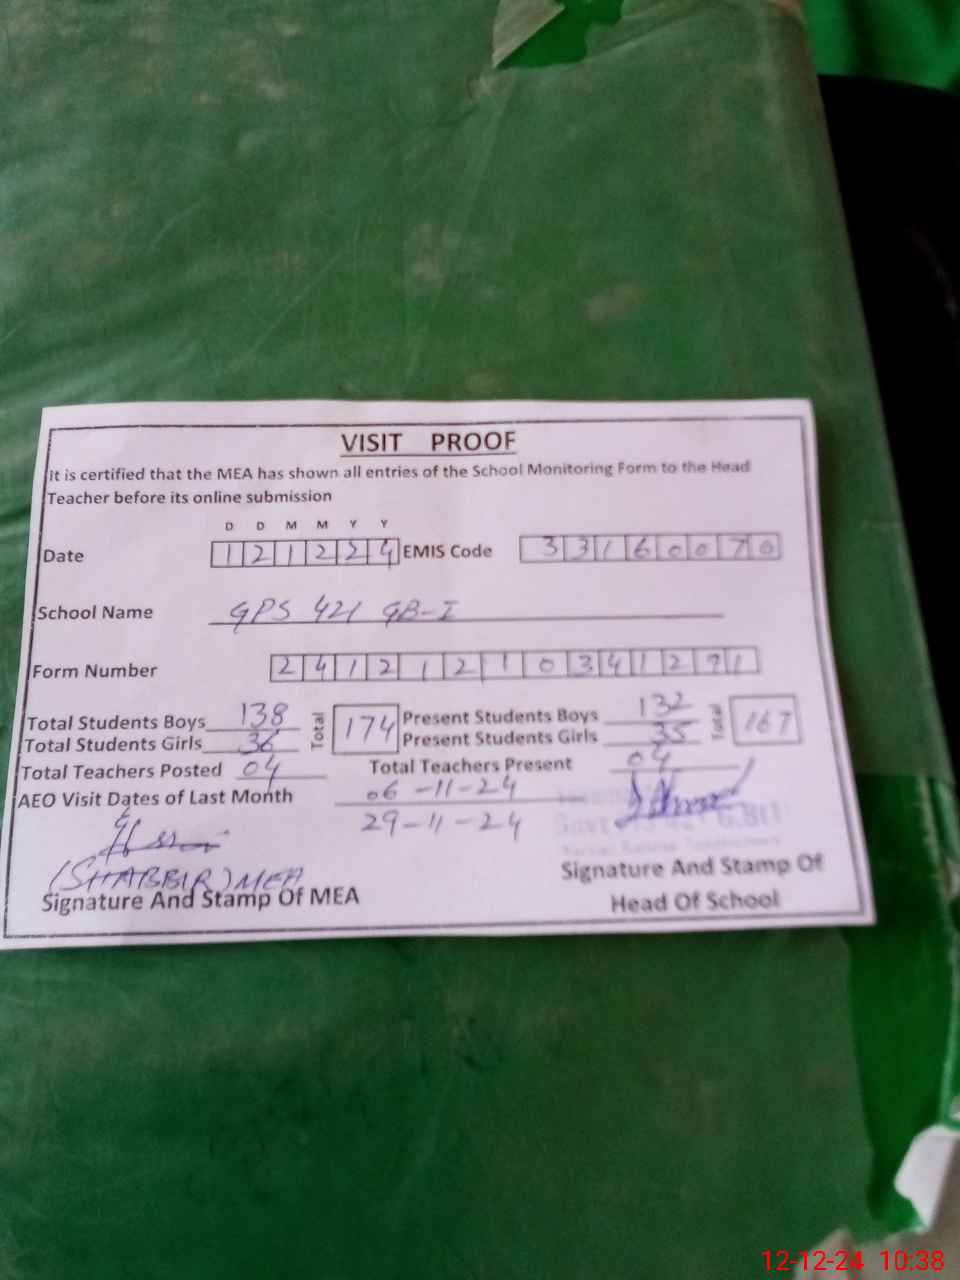 VISIT PROOF
It is certified that the MEA has shown all entries of the School Monitoring Form to the Head
Teacher before its online submission
D D M M Y Y
Date 121224 EMIS Code 33160070
School Name GPS 421 GB-I
Form Number 24121210341291
Total Students Boys 138 Total 174 Present Students Boys 132 Total 167
Total Students Girls 36 Present Students Girls 35
Total Teachers Posted 04 Total Teachers Present 04
AEO Visit Dates of Last Month 06-11-24
29-11-24
(SHABBIR) MEA
Signature And Stamp Of MEA
Signature And Stamp Of
Head Of School
12-12-24 10:38